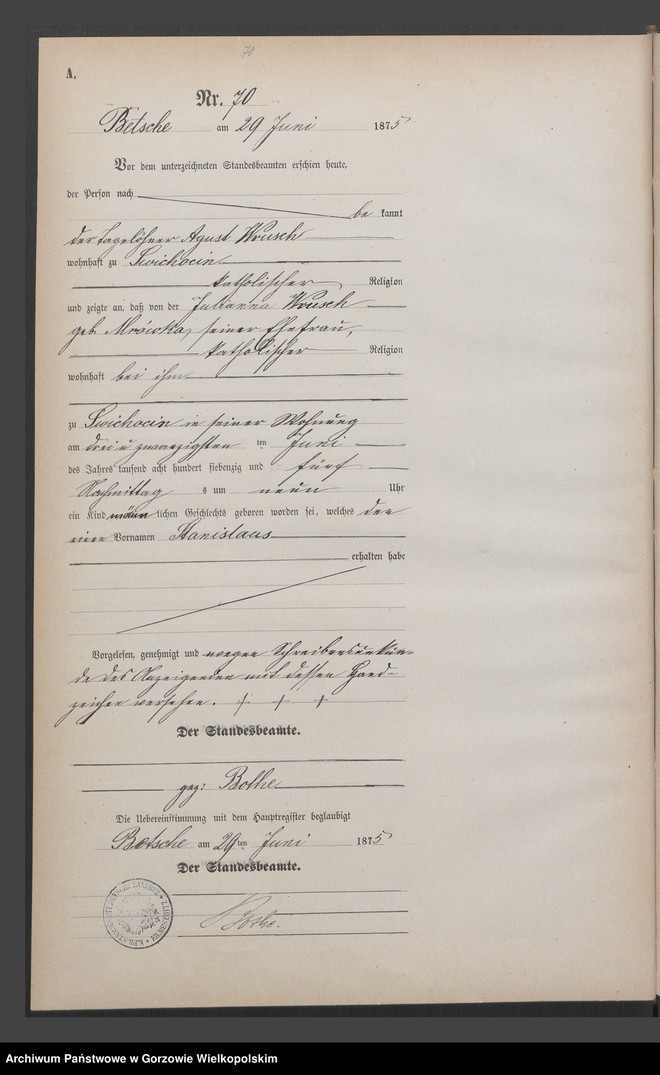 70
A.
Nr. 70
Betsche am 29 Juni 1875
Vor dem unterzeichneten Standesbeamten erschien heute,
der Person nach
be kannt
der Tagelöhner Agust Wrusch
wohnhaft zu Swichocin
katholischer Religion
und zeigte an, daß von der Julianna Wrusch
geb Mrówka, seiner Ehefrau,
katholischer Religion
wohnhaft bei ihm
zu Swichocin in seiner Wohnung
am drei u zwanzigsten ten Juni
des Jahres tausend acht hundert siebenzig und fünf
Nachmittag s um neun Uhr
ein Kind männ lichen Geschlechts geboren worden sei, welches den
einen Vornamen Stanislaus
erhalten habe
Vorgelesen, genehmigt und wegen Schreibensunkun-
de des Anzeigenden mit dessen Hand-
zeichen versehen. + + +
Der Standesbeamte.
gez: Bothe
Die Uebereinstimmung mit dem Hauptregister beglaubigt
Betsche am 29 ten Juni 1875
Der Standesbeamte.
Bothe.
Archiwum Państwowe w Gorzowie Wielkopolskim